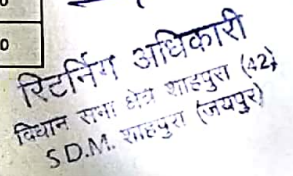 0
रिटर्निग अधिकारी
विधान सभा क्षेत्र शाहपुरा (42)
S.D.M. शाहपुरा (जयपुर)